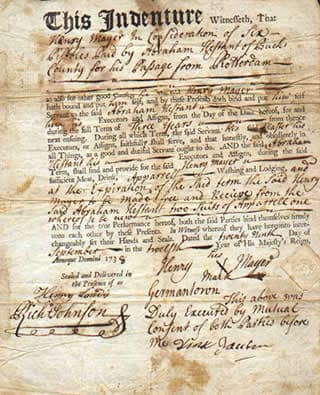 This Indenture Witnesseth, That
Henry Mayer In Consideration of Six
Paid by Abraham Hestant of Bucks
County for his Passage from Rotterdam
as also for other good Causes he the said Henry Mayer
hath bound and put himself, and by these Presents doth bind and put himself
Servant to the said Abraham Hestant
Executors and Assigns, from the Day of the Date hereof, for and
during the full Term of Three Years
next ensuing. During all which Term, the said Servant his said
Executors, or Assigns, faithfully shall serve, and that honestly,
all Things, as a good and dutiful Servant ought to do. AND the said Abraham
Hestant his Executors and Assigns, during the said
Term, shall find and provide for the said Henry Mayer
sufficient Meat, Drink, Apparel Washing and Lodging, and
at the Expiration of the Said term the said Henry
Mayer to be made free and Receive from the
Said Abraham Hestant two Suits of Apparrell one
whereof to be new
AND for the true Performance hereof, both the said Parties bind themselves firmly
unto each other by these Presents. In Witness whereof they have hereunto inter-
changeably set their Hands and Seals. Dated the Day of
September in the twelfth Year of His Majesty's Reign,
Annoque Domini 1738
Henry Mayer
mark
Sealed and Delivered in
the Presence of us
Rich Johnson
Germantown This above was
Duly Executed by Mutual
Consent of both the Parties before
me